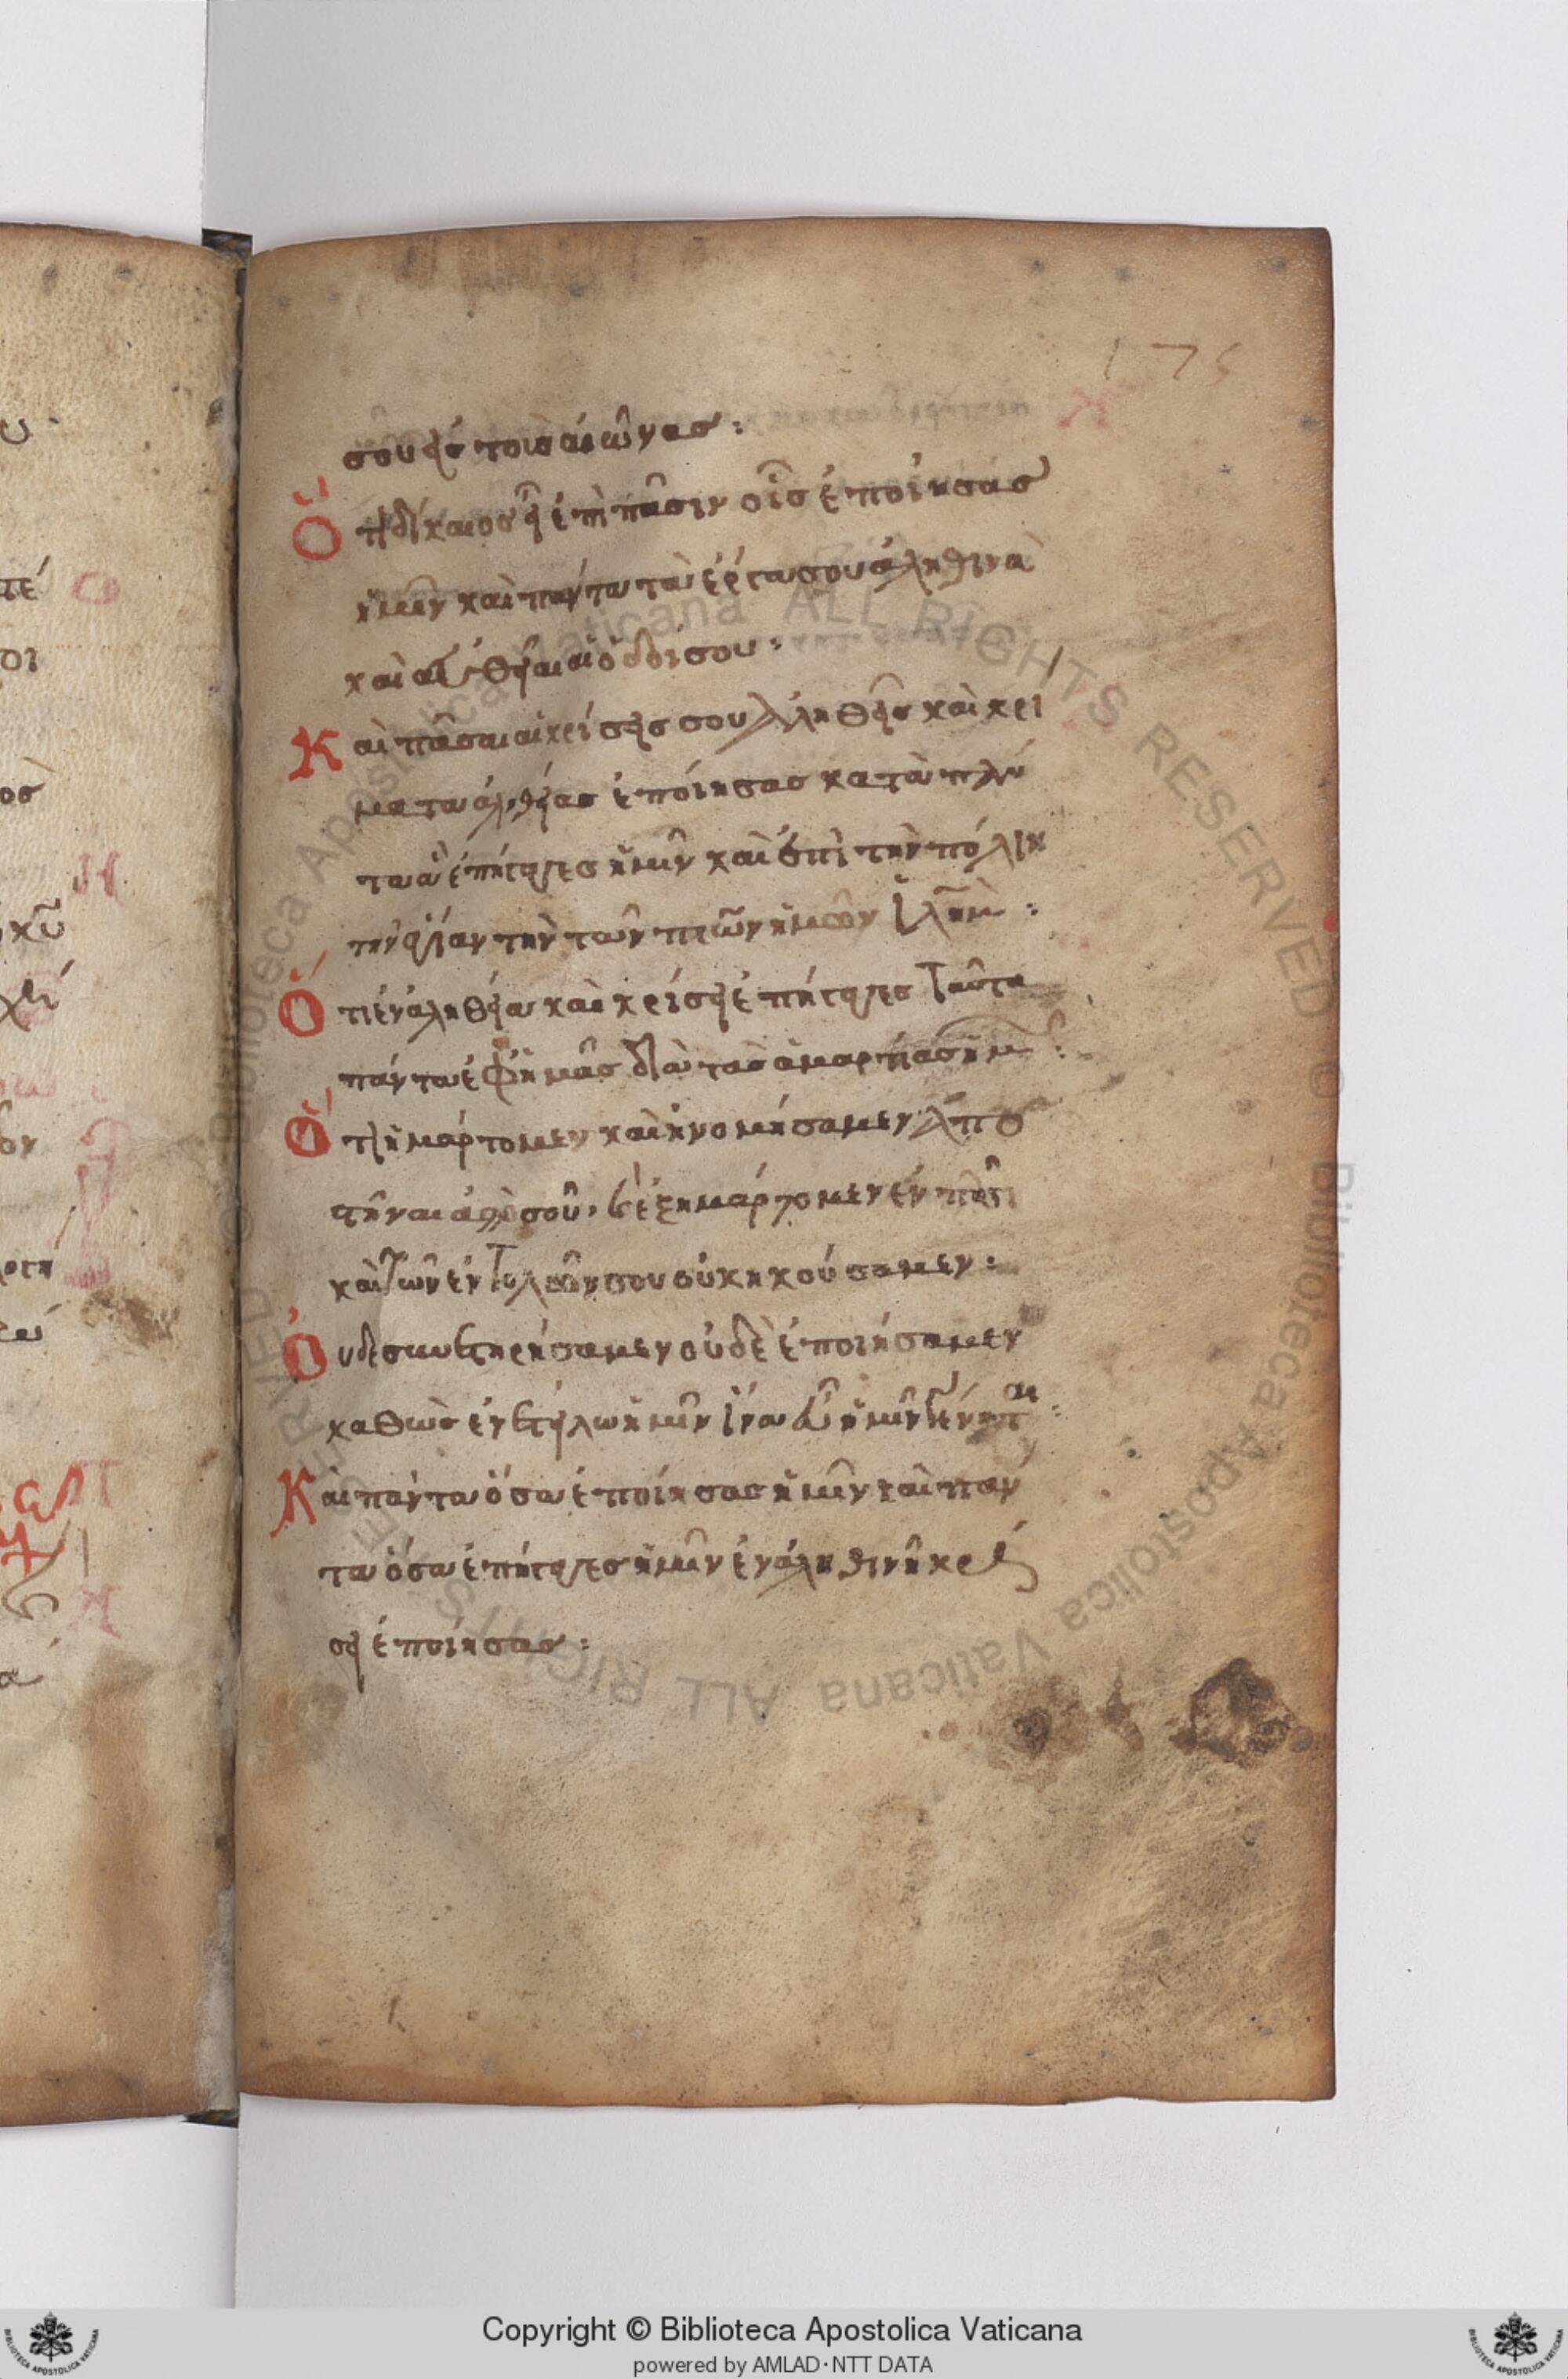 175
σου εἰς τοὺς αἰῶνας:
Ὅτι δίκαιος εἶ ἐπὶ πᾶσιν οἷς ἐποίησας
ἡμῖν καὶ πάντα τὰ ἔργα σου ἀληθινὰ
καὶ εὐθεῖαι αἱ ὁδοί σου:
Καὶ πᾶσαι αἱ κρίσεις σου ἀληθεῖς καὶ κρί
ματα ἀληθείας ἐποίησας κατὰ πάν
τα ἃ ἐπήγαγες ἡμῖν καὶ ἐπὶ τὴν πόλιν
τὴν ἁγίαν τὴν τῶν πρῶν ἡμῶν ἱλῆμ:
Ὅτι ἐν ἀληθεία καὶ κρίσει ἐπήγαγες ταῦτα
πάντα ἐφ ἡμᾶς διὰ τὰς ἁμαρτίας ἡμ:
Ὅτι ἡμάρτομεν καὶ ἠνομήσαμεν ἀπο
στῆναι ἀπὸ σοῦ, καὶ ἐξημάρτομεν ἐν πᾶσι
καὶ τῶν ἐντολῶν σου οὐκ ἠκούσαμεν:
Οὐδὲ συνετηρήσαμεν οὐδὲ ἐποιήσαμεν
καθὼς ἐνετείλω ἡμῖν ἵνα εὖ ἡμῖν γένηται:
Καὶ πάντα ὅσα ἐποίησας ἡμῖν καὶ πάν
τα ὅσα ἐπήγαγες ἡμῖν ἐν ἀληθινῆ κρί
σει ἐποίησας:
Copyright © Biblioteca Apostolica Vaticana
powered by AMLAD·NTT DATA